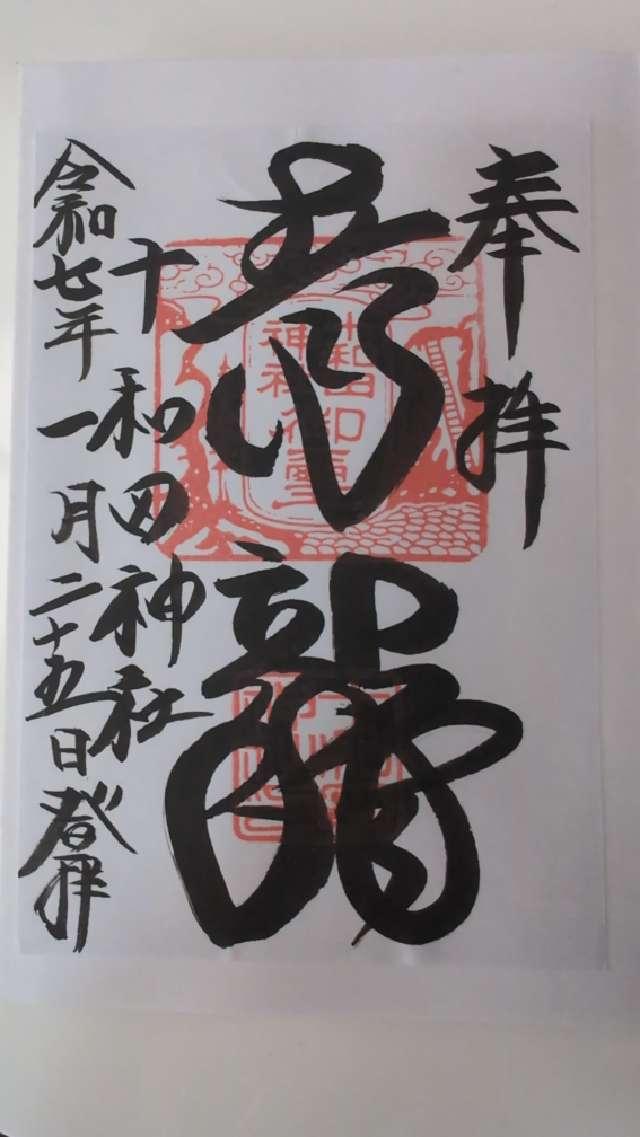 奉拝
青龍
十和田神社
令和七年一月二十五日登拝
十和田
神社御霊